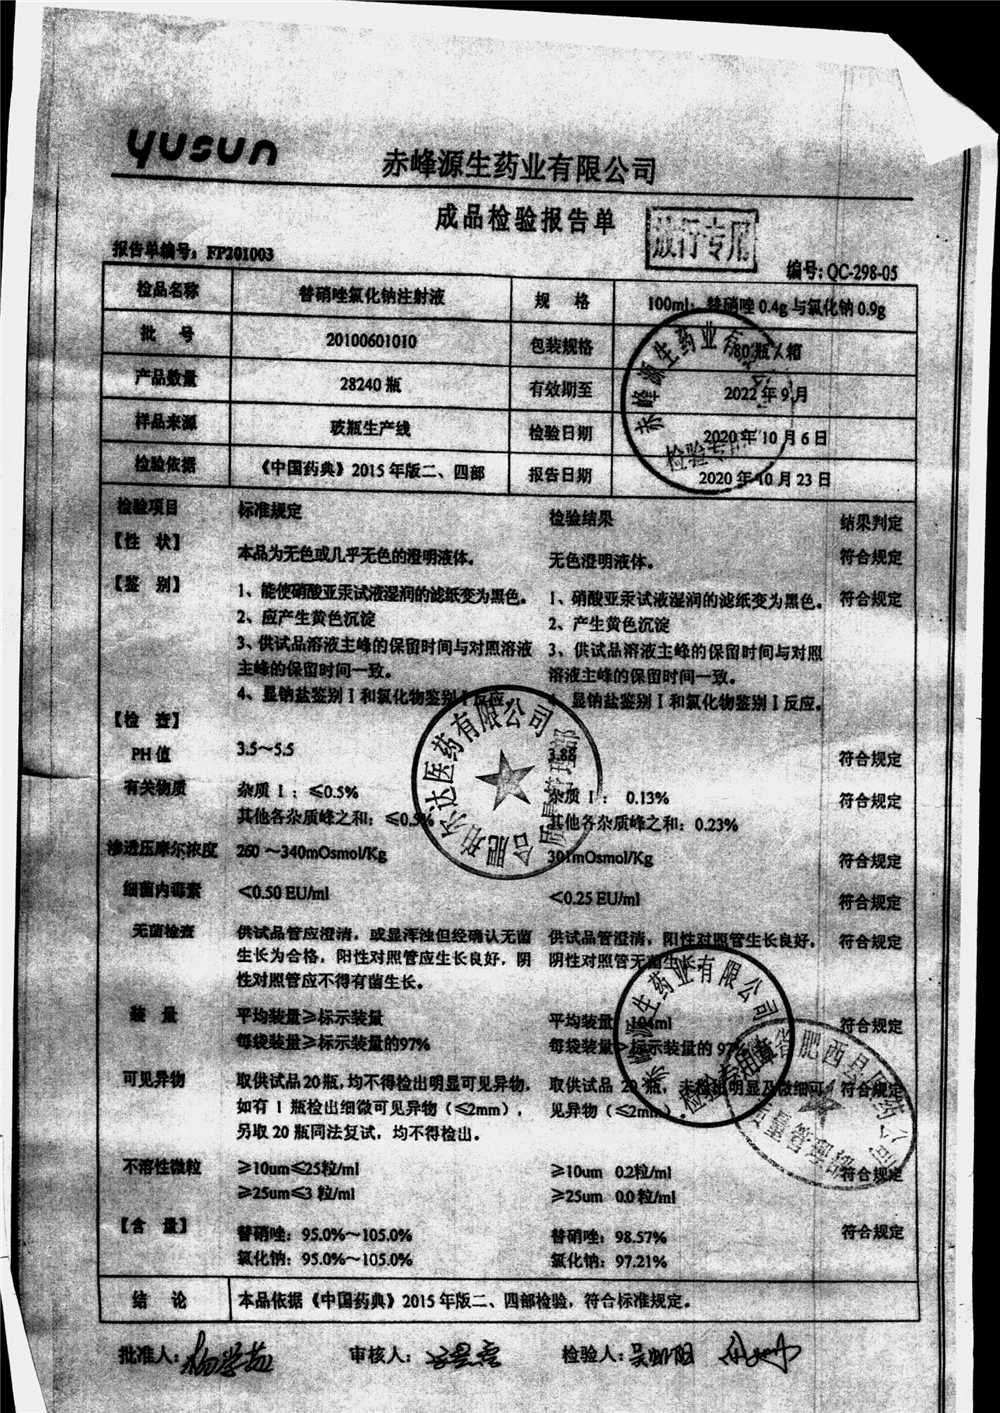 yusun
赤峰源生药业有限公司
成品检验报告单
放行专用
报告单编号：FP201003
编号：QC-298-05
检品名称 替硝唑氯化钠注射液 规 格 100ml：替硝唑 0.4g 与氯化钠 0.9g
批 号 20100601010 包装规格 80 瓶/箱
产品数量 28240 瓶 有效期至 2022 年 9 月
样品来源 玻瓶生产线 检验日期 2020 年 10 月 6 日
检验依据 《中国药典》2015 年版二、四部 报告日期 2020 年 10 月 23 日
赤峰源生药业有限公司
检验专用
检验项目 标准规定 检验结果 结果判定
【性 状】 本品为无色或几乎无色的澄明液体。 无色澄明液体。 符合规定
【鉴 别】 1、能使硝酸亚汞试液湿润的滤纸变为黑色。 1、硝酸亚汞试液湿润的滤纸变为黑色。 符合规定
2、应产生黄色沉淀 2、产生黄色沉淀
3、供试品溶液主峰的保留时间与对照溶液 3、供试品溶液主峰的保留时间与对照
主峰的保留时间一致。 溶液主峰的保留时间一致。
4、显钠盐鉴别 I 和氯化物鉴别 I 反应。 4、显钠盐鉴别 I 和氯化物鉴别 I 反应。
【检 查】
PH 值 3.5～5.5 3.88 符合规定
有关物质 杂质 I ：≤0.5% 杂质 I ： 0.13% 符合规定
其他各杂质峰之和：≤0.5% 其他各杂质峰之和：0.23%
渗透压摩尔浓度 260 ～340mOsmol/Kg 301mOsmol/Kg 符合规定
合肥 尔达医药有限公司
质量管理部
细菌内毒素 <0.50 EU/ml <0.25 EU/ml 符合规定
无菌检查 供试品管应澄清，或显浑浊但经确认无菌 供试品管澄清，阳性对照管生长良好， 符合规定
生长为合格，阳性对照管应生长良好，阴 阴性对照管无菌生长。
性对照管应不得有菌生长。
装 量 平均装量≥标示装量 平均装量：104ml 符合规定
每袋装量≥标示装量的97% 每袋装量>标示装量的 97%
赤峰源生药业有限公司
检验专用章
可见异物 取供试品 20 瓶，均不得检出明显可见异物， 取供试品 20 瓶，未检出明显及微细可 符合规定
如有 1 瓶检出细微可见异物（≤2mm）， 见异物（≤2mm）。
另取 20 瓶同法复试，均不得检出。
省肥西县医药公司
质量管理部
不溶性微粒 ≥10um≤25粒/ml ≥10um 0.2粒/ml 符合规定
≥25um≤3 粒/ml ≥25um 0.0 粒/ml
【含 量】 替硝唑：95.0%～105.0% 替硝唑：98.57% 符合规定
氯化钠：95.0%～105.0% 氯化钠：97.21%
结 论 本品依据《中国药典》2015 年版二、四部检验，符合标准规定。
批准人： 审核人： 检验人：